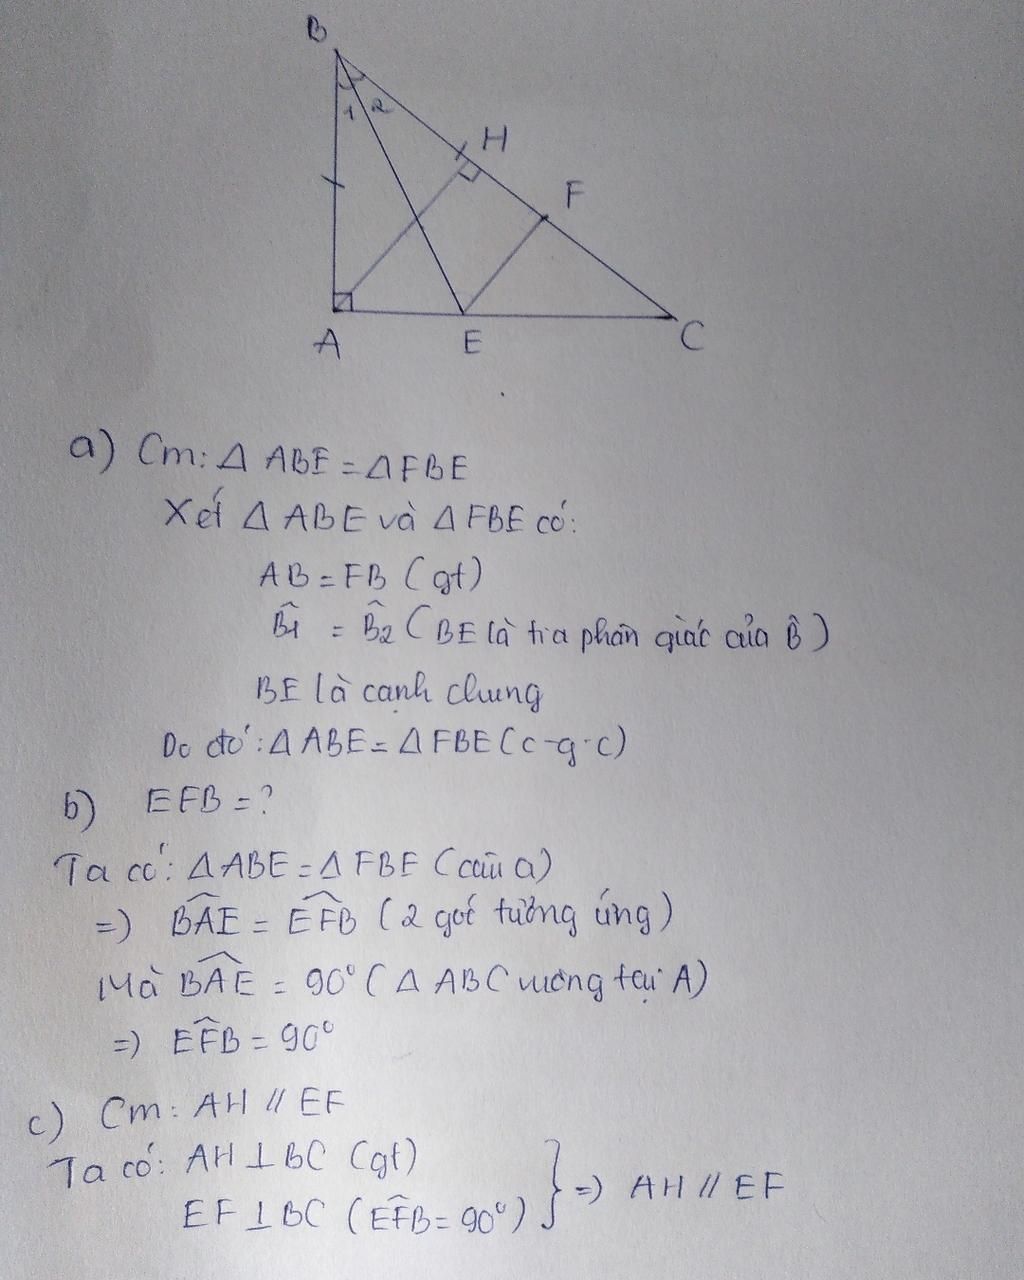 B
1 2
H
F
A E C
a) Cm: Δ ABE = Δ FBE
Xét Δ ABE và Δ FBE có:
AB = FB (gt)
B̂1 = B̂2 (BE là tia phân giác của B̂)
BE là cạnh chung
Do đó: Δ ABE = Δ FBE (c-g-c)
b) EFB = ?
Ta có: Δ ABE = Δ FBE (câu a)
=) BÂE = EF̂B (2 góc tương ứng)
Mà BÂE = 90° (Δ ABC vuông tại A)
=) EF̂B = 90°
c) Cm: AH // EF
Ta có: AH ⊥ BC (gt)
EF ⊥ BC (EF̂B = 90°) } =) AH // EF